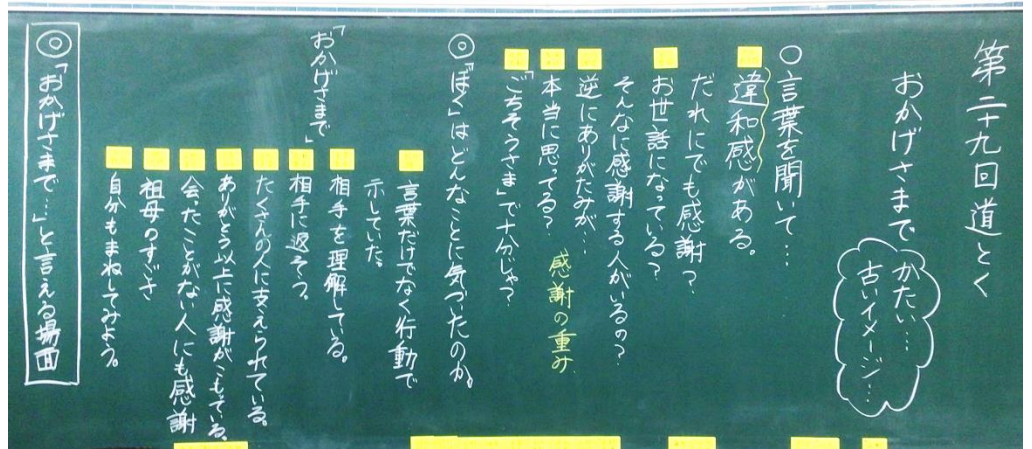 第二十九回道とく
おかげさまで
かたい…
古いイメージ…
○言葉を聞いて…
違和感がある。
だれにでも感謝?
お世話になっている?
そんなに感謝する人がいるの?
逆にありがたみが…
本当に思ってる?
感謝の重み
「ごちそうさま」で十分じゃ?
◎「ぼく」はどんなことに気づいたのか。
言葉だけでなく行動で
示していた。
「おかげさまで」
相手を理解している。
相手に返そう。
たくさんの人に支えられている。
ありがとう以上に感謝がこもっている。
会ったことがない人にも感謝
祖母のすごさ
自分もまねしてみよう。
◎「おかげさまで…」と言える場面